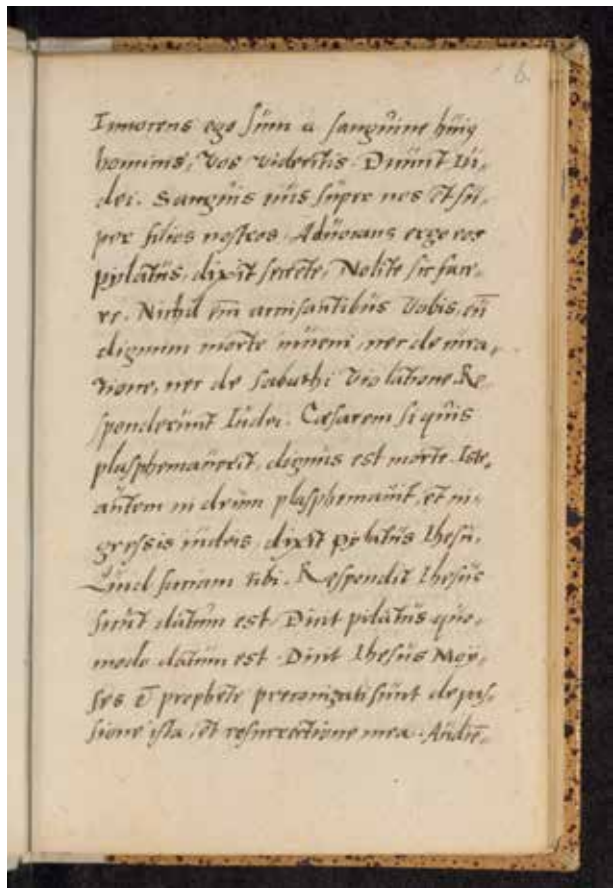 6.
Innocens ego sum a sanguine huiꝰ
hominis, vos videritis. Dicunt Iu-
dei. Sanguis eius supre nos et su-
per filios nostros. Aduocans ergo eos
pylatus, dixit secrete, Nolite sic face-
re. Nichil em̄ accusantibus vobis, eū
dignum morte inueni, nec de cura-
tione, nec de sabathi violatione. Re-
sponderunt Iudei. Cæsarem si quis
plasphemauerit, dignus est morte. Iste,
autem in deum plasphemauit, et in-
gressis iudeis, dixit pylatus Ihesu.
Quid faciam tibi. Respondit Ihesus
sicut datum est. Dicit pilatus quo-
modo datum est. Dicit Ihesus Moy-
ses et prophete preconizati sunt de pas-
sione ista, et resurrectione mea. Audiē-